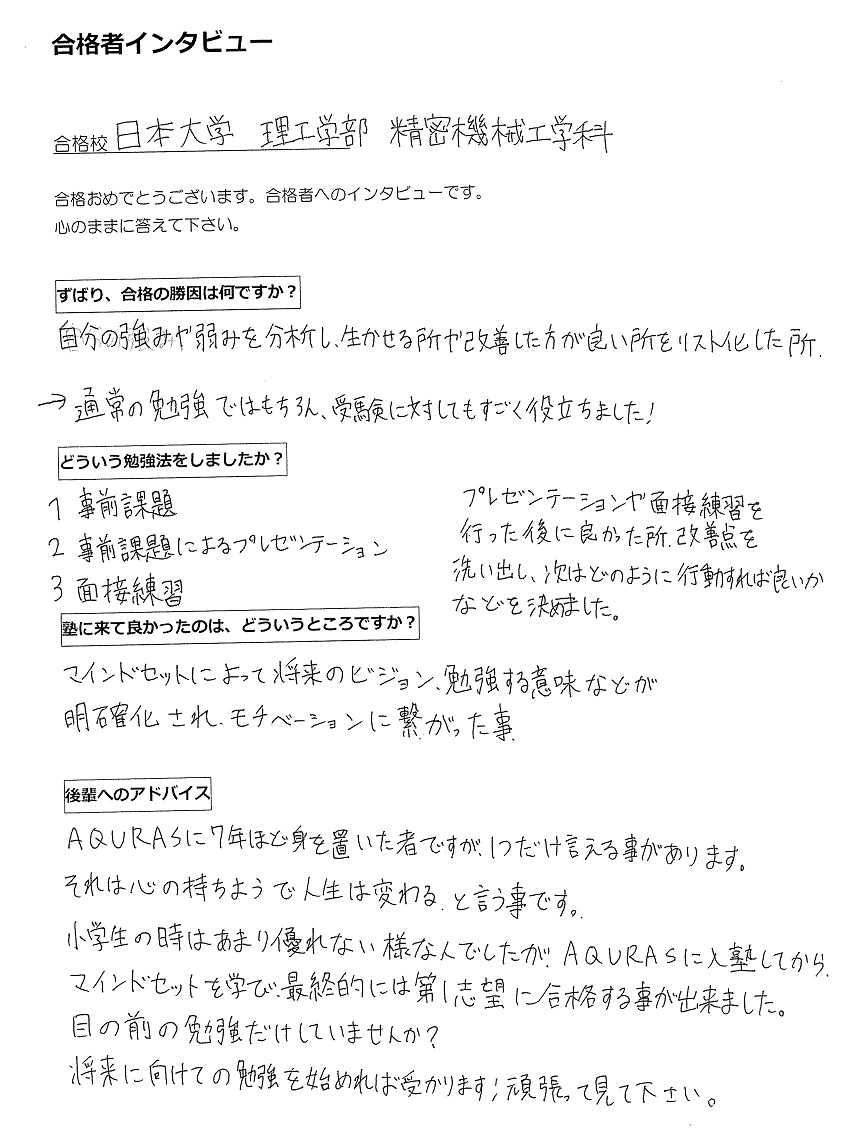 合格者インタビュー
合格校 日本大学 理工学部 精密機械工学科
合格おめでとうございます。合格者へのインタビューです。
心のままに答えて下さい。
ずばり、合格の勝因は何ですか？
自分の強みや弱みを分析し、生かせる所や改善した方が良い所をリスト化した所.
→通常の勉強ではもちろん、受験に対してもすごく役立ちました！
どういう勉強法をしましたか？
1 事前課題
2 事前課題によるプレゼンテーション
3 面接練習
プレゼンテーションや面接練習を
行った後に良かった所.改善点を
洗い出し、次はどのように行動すれば良いか
などを決めました。
塾に来て良かったのは、どういうところですか？
マインドセットによって将来のビジョン、勉強する意味などが
明確化され、モチベーションに繋がった事
後輩へのアドバイス
AQURASに7年ほど身を置いた者ですが、1つだけ言える事があります。
それは心の持ちようで人生は変わる.と言う事です。
小学生の時はあまり優れない様な人でしたが、AQURASに入塾してから、
マインドセットを学び、最終的には第1志望に合格する事が出来ました。
目の前の勉強だけしていませんか？
将来に向けての勉強を始めれば受かります！頑張って見て下さい。